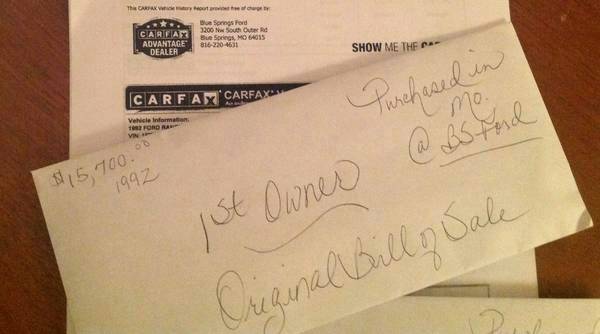 This CARFAX Vehicle History Report provided free of charge by:
CARFAX
ADVANTAGE
DEALER
Blue Springs Ford
3200 Nw South Outer Rd
Blue Springs, MO 64015
816-220-4631
SHOW ME THE
CARFAX CARFAX
Vehicle Information:
1992 FORD
VIN
$15,700.00
1992
Purchased in
Mo.
@ BS Ford
1st Owner
Original Bill of Sale